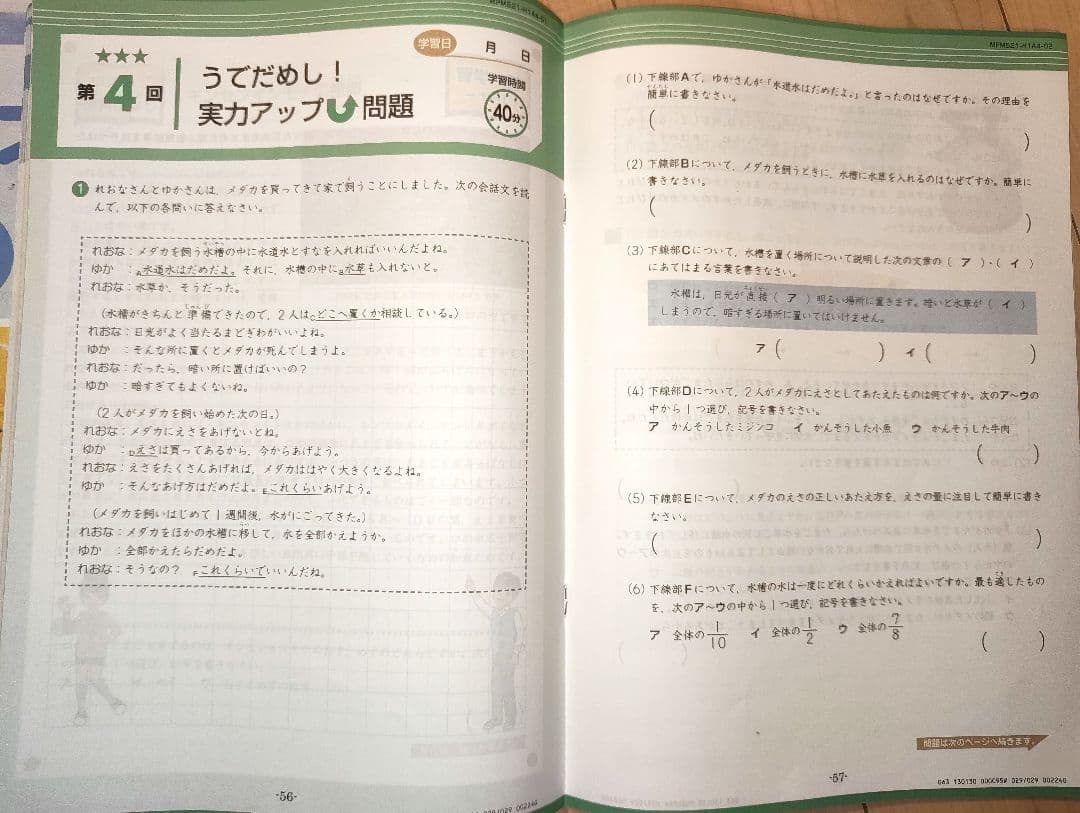 MPMS21-H1A4-01
★★★
第4回
うでだめし！
実力アップ問題
学習日
月　日
学習時間
40分
1 れおなさんとゆかさんは、メダカを買ってきて家で飼うことにしました。次の会話文を読
んで、以下の各問いに答えなさい。
れおな：メダカを飼う水槽の中に水道水とすなを入れればいいんだよね。
ゆか　：A水道水はだめだよ。それに、水槽の中にB水草も入れないと。
れおな：水草か、そうだった。
（水槽がきちんと準備できたので、2人はCどこへ置くか相談している。）
れおな：日光がよく当たるまどぎわがいいよね。
ゆか　：そんな所に置くとメダカが死んでしまうよ。
れおな：だったら、暗い所に置けばいいの？
ゆか　：暗すぎてもよくないね。
（2人がメダカを飼い始めた次の日。）
れおな：メダカにえさをあげないとね。
ゆか　：Dえさは買ってあるから、今からあげよう。
れおな：えさをたくさんあげれば、メダカははやく大きくなるよね。
ゆか　：そんなあげ方はだめだよ。Eこれくらいあげよう。
（メダカを飼いはじめて1週間後、水がにごってきた。）
れおな：メダカをほかの水槽に移して、水を全部かえようか。
ゆか　：全部かえたらだめだよ。
れおな：そうなの？　Fこれくらいでいいんだね。
-56-
MPMS21-H1A4-02
(1) 下線部Aで、ゆかさんが「水道水はだめだよ。」と言ったのはなぜですか。その理由を
簡単に書きなさい。
(　　)
(2) 下線部Bについて、メダカを飼うときに、水槽に水草を入れるのはなぜですか。簡単に
書きなさい。
(　　)
(3) 下線部Cについて、水槽を置く場所について説明した次の文章の（ ア ）・（ イ ）
にあてはまる言葉を書きなさい。
水槽は、日光が直接（ ア ）明るい場所に置きます。暗いと水草が（ イ ）
しまうので、暗すぎる場所に置いてはいけません。
ア（　　）　イ（　　）
(4) 下線部Dについて、2人がメダカにえさとしてあたえたものは何ですか。次のア〜ウの
中から1つ選び、記号を書きなさい。
ア　かんそうしたミジンコ　イ　かんそうした小魚　ウ　かんそうした牛肉
(　　)
(5) 下線部Eについて、メダカのえさの正しいあたえ方を、えさの量に注目して簡単に書き
なさい。
(　　)
(6) 下線部Fについて、水槽の水は一度にどれくらいかえればよいですか。最も適したもの
を、次のア〜ウの中から1つ選び、記号を書きなさい。
ア　全体の1/10　イ　全体の1/2　ウ　全体の7/8
(　　)
問題は次のページへ続きます。
-57-